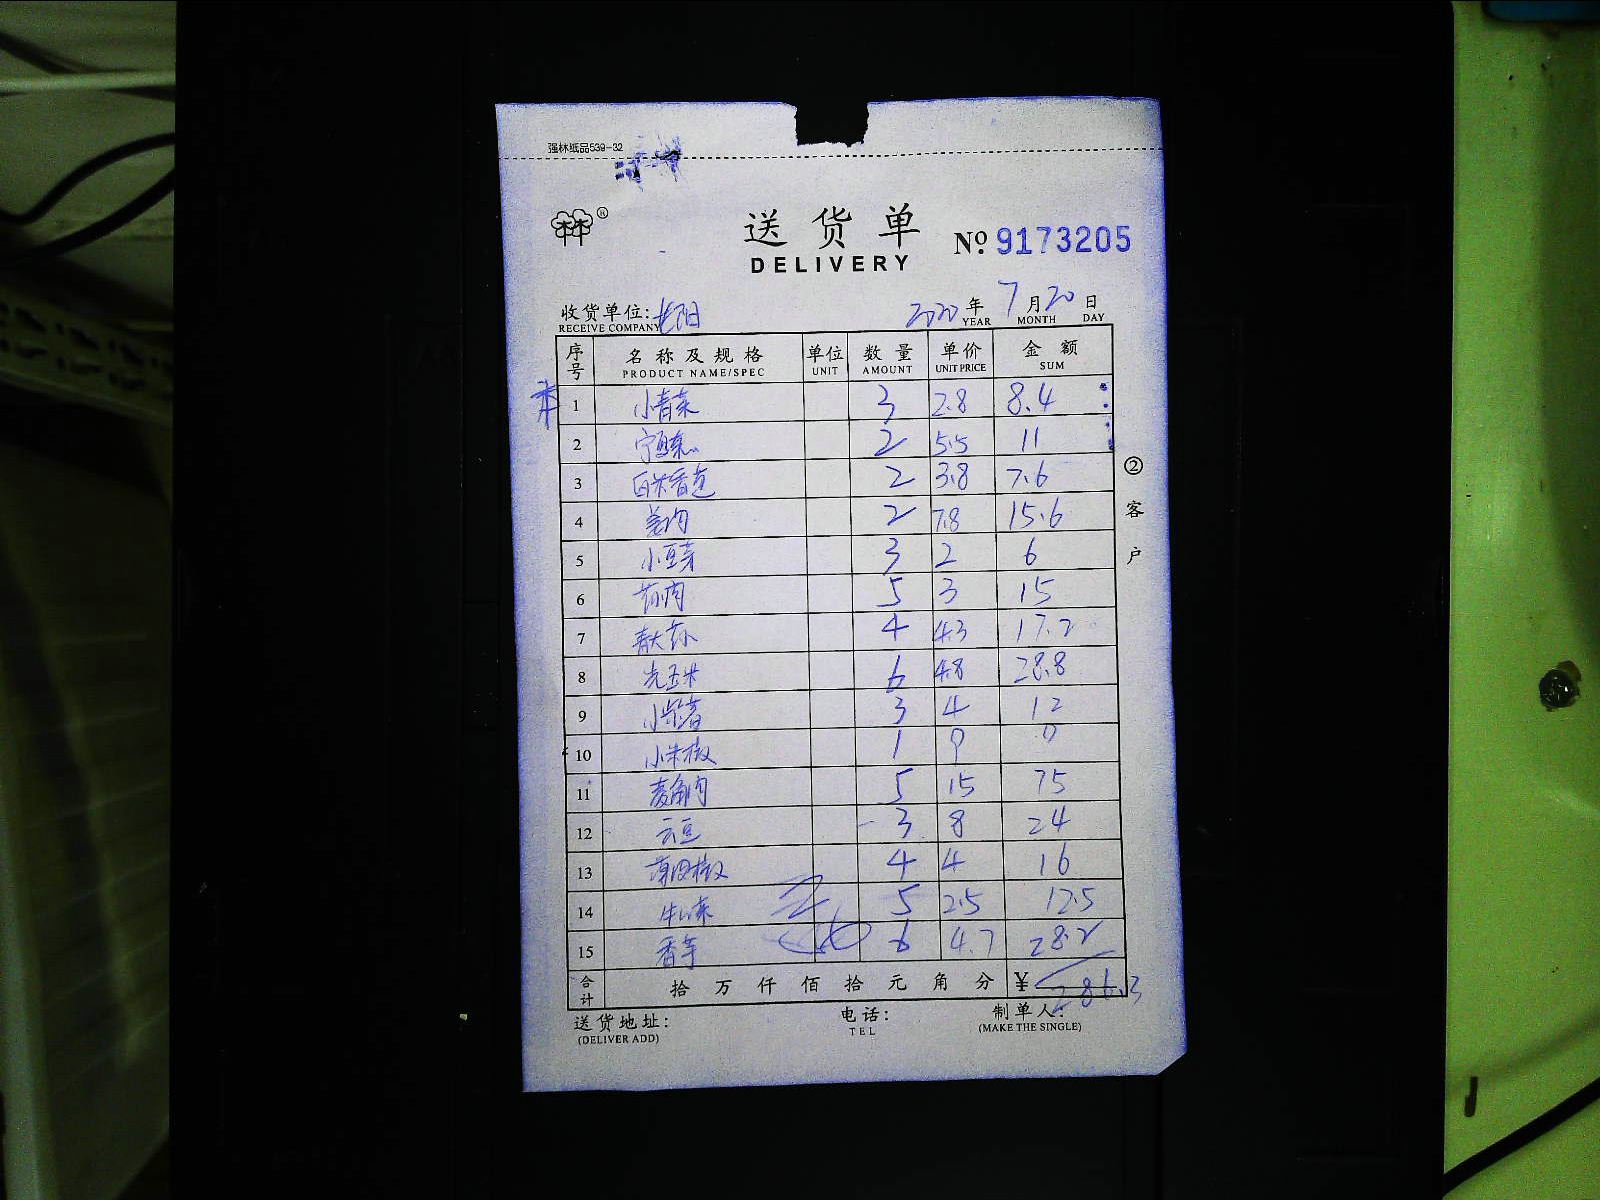 强林纸品539-32
林®
送货单
DELIVERY
№ 9173205
收货单位: 长阳 2020年7月20日
RECEIVE COMPANY YEAR MONTH DAY
序号 名称及规格 单位 数量 单价 金额
PRODUCT NAME/SPEC UNIT AMOUNT UNIT PRICE SUM
1 小青菜 3 2.8 8.4
2 2 5.5 11
3 2 3.8 7.6
4 姜肉 2 7.8 15.6
5 小豆芽 3 2 6
6 5 3 15
7 4 4.3 17.2
8 光玉米 6 4.8 28.8
9 小紫薯 3 4 12
10 小米椒 1 9 9
11 菱角肉 5 15 75
12 云豆 3 8 24
13 薄皮椒 4 4 16
14 牛心菜 5 2.5 12.5
15 香芋 6 4.7 28.2
合计 拾万仟佰拾元角分 ¥ 286.3
②客户
送货地址: 电话: 制单人:
(DELIVER ADD) TEL (MAKE THE SINGLE)